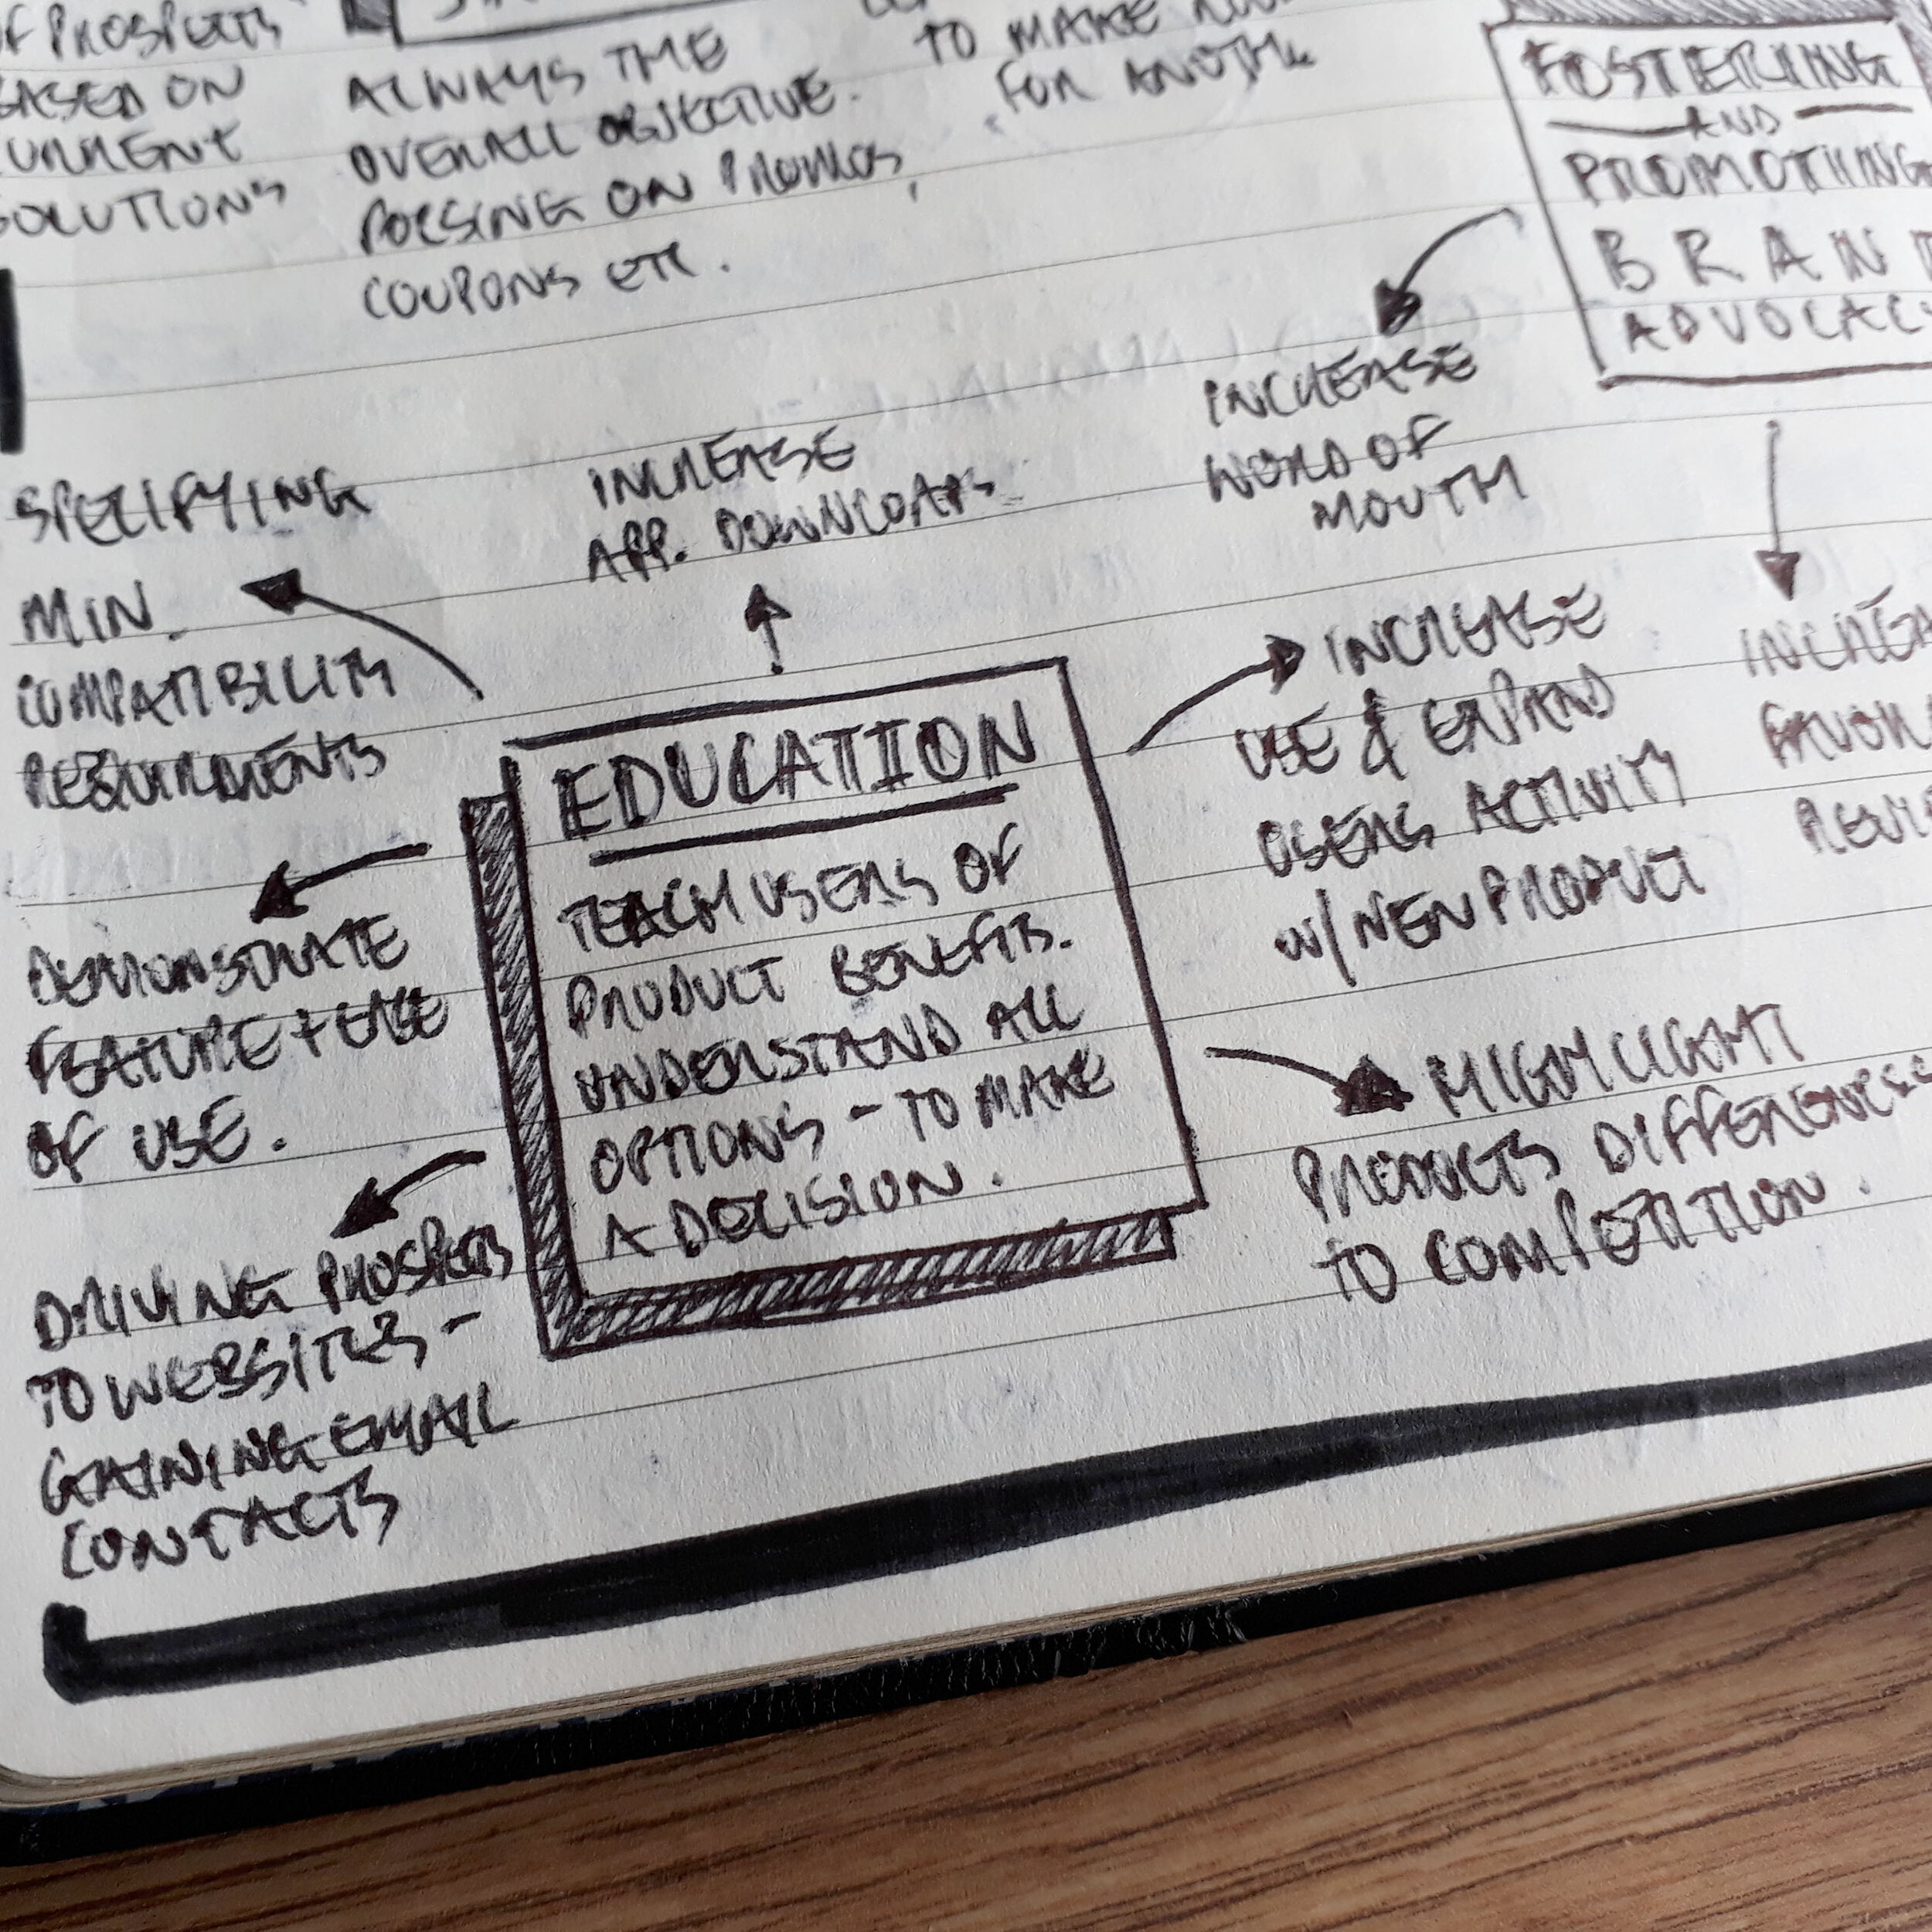 OF PROSPECTS
BASED ON
CURRENT
SOLUTIONS
ALWAYS THE
OVERALL OBJECTIVE.
ON PROMOS,
COUPONS ETC.
TO MAKE
FOR ANOTHE
FOSTERING
AND
PROMOTHING
BRAND
ADVOCAC
INCREASE
WORD OF
MOUTH
SPECIFYING
MIN.
COMPATIBILITY
REQUIRMENTS
INCREASE
APP. DOWNLOADS
EDUCATION
TEACH USERS OF
PRODUCT BENEFITS.
UNDERSTAND ALL
OPTIONS - TO MAKE
A DECISION.
INCREASE
USE & EXPAND
USERS ACTIVITY
W/ NEW PRODUCT
INCREA
FAVOR
REVI
DEMONSTRATE
FEATURE + EASE
OF USE.
DRIVING PROSPECTS
TO WEBSITES -
GAINING EMAIL
CONTACTS
HIGHLIGHT
PRODUCTS DIFFERENCES
TO COMPETITION.